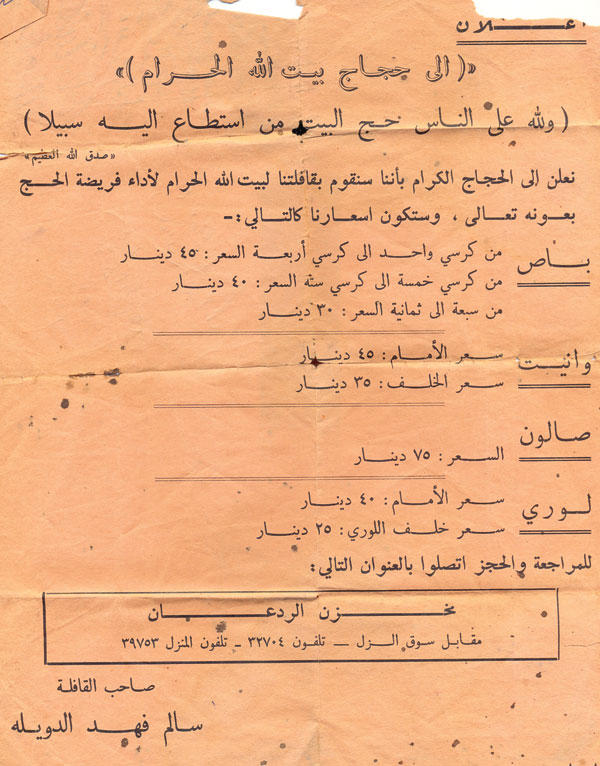 اعـــلان
«( الى حجاج بيت الله الحرام )»
( ولله على الناس حج البيت من استطاع اليه سبيلا )
« صدق الله العظيم »
نعلن إلى الحجاج الكرام بأننا سنقوم بقافلتنا لبيت الله الحرام لأداء فريضة الحج
بعونه تعالى ، وستكون اسعارنا كالتالي :-
بـاص
من كرسي واحد الى كرسي أربعة السعر : ٤٥ دينـار
من كرسي خمسة الى كرسي ستة السعر : ٤٠ دينـار
من سبعة الى ثمانية السعر : ٣٠ دينـار
وانيـت
سعـر الأمام : ٤٥ دينـار
سعـر الخلف : ٣٥ دينـار
صـالون
السعـر : ٧٥ دينـار
لـوري
سعـر الأمام : ٤٠ دينـار
سعر خلف اللوري : ٢٥ دينـار
للمراجعة والحجز اتصلوا بالعنوان التالي :
مخـزن الردعـان
مقـابل سوق الـزل — تلفون ٣٢٧٠٤ - تلفون المنزل ٣٩٧٥٣
صـاحب القافلـة
سـالم فهـد الدويـله